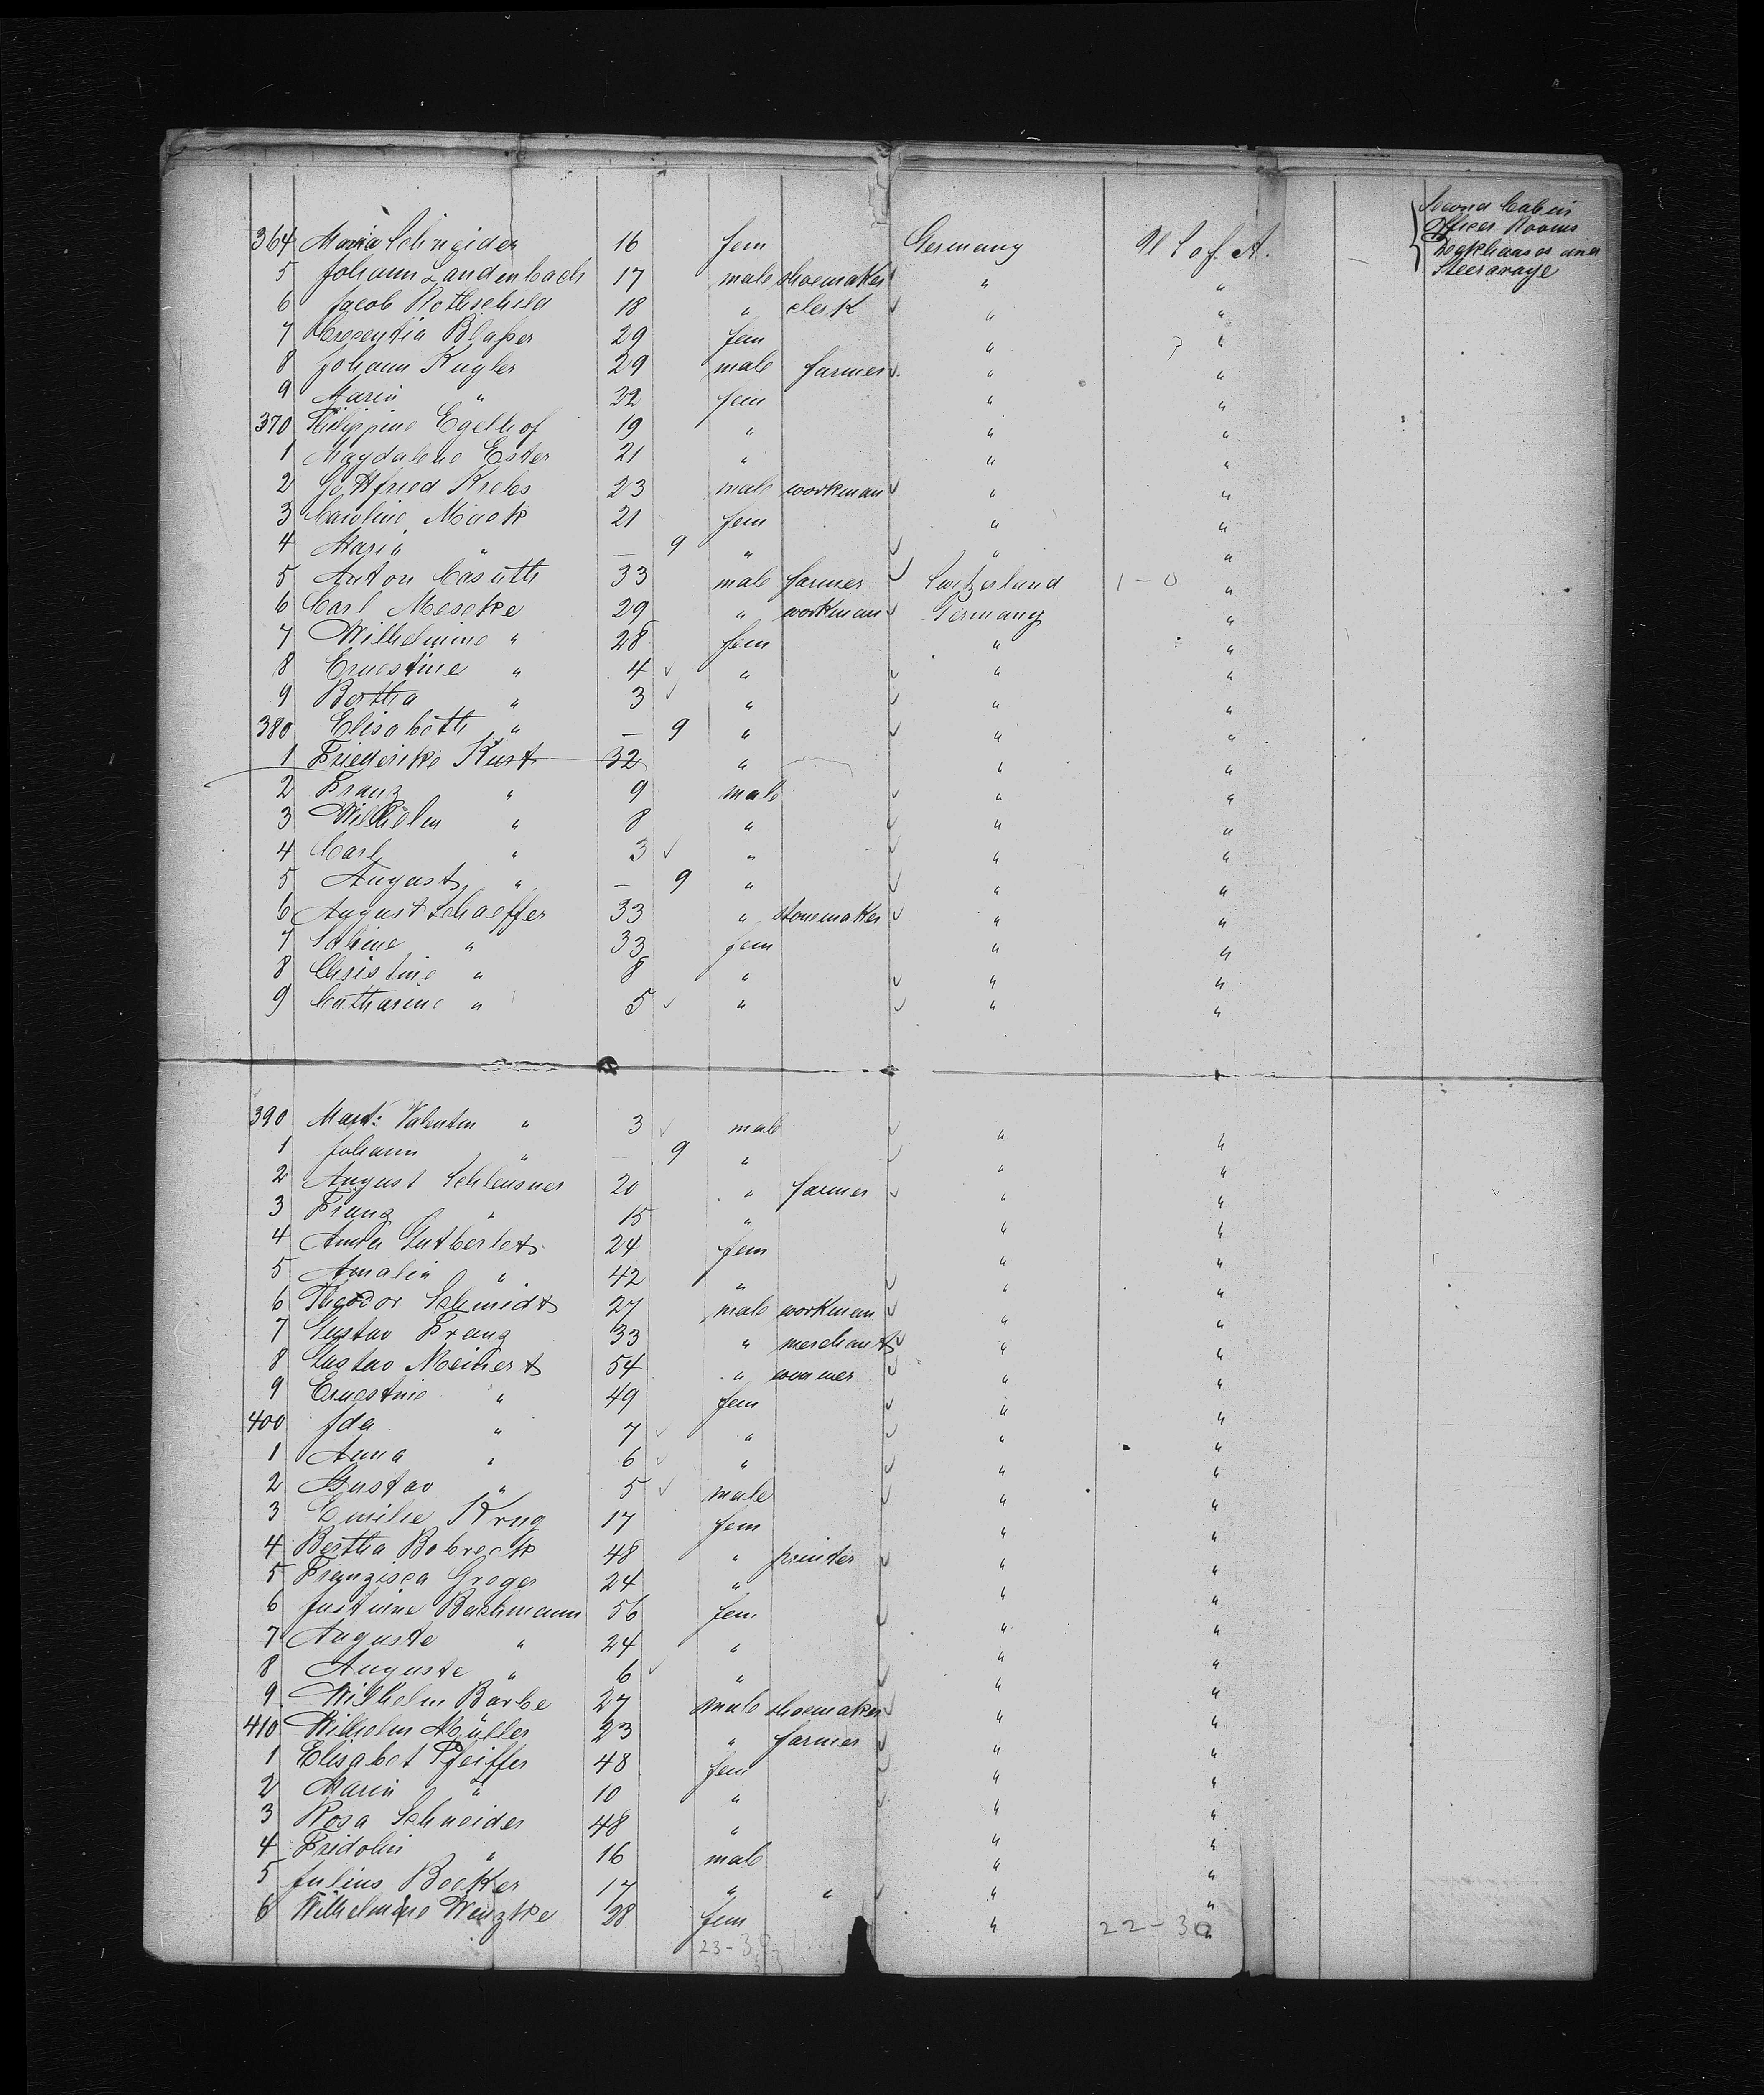 Second Cabin
Officer Rooms
Deckhouses and
Steerarage
364 Maria Schneider 16 fem Germany U S of A.
5 Johann Landenbach 17 male shoemaker " "
6 Jacob Rothschild 18 " clerk " "
7 Crecentia Blaßer 29 fem " "
8 Johann Kugler 29 male farmer " "
9 Maria " 22 fem " "
370 Philippine Egelhof 19 " " "
1 Magdalene Ester 21 " " "
2 Gottfried Krebs 23 male workman " "
3 Caroline Mück 21 fem " "
4 Maria " — 9 " " "
5 Anton Casutt 33 male farmer Switzerland 1-0 "
6 Carl Meseke 29 " workman Germany "
7 Wilhelmine " 28 fem " "
8 Ernestine " 4 " " "
9 Bertha " 3 " " "
380 Elisabeth " — 9 " " "
1 Friederike Kust 32 " " "
2 Franz " 9 male " "
3 Wilhelm " 8 " " "
4 Carl " 3 " " "
5 August " — 9 " " "
6 August Schaeffer 33 " stonemaker " "
7 Sabine " 33 fem " "
8 Christine " 8 " " "
9 Catharine " 5 " " "
390 Mart: Valentin " 3 male " "
1 Johann " 9 " " "
2 August Schleusner 20 " farmer " "
3 Franz " 15 " " "
4 Anna Gutberlet 24 fem " "
5 Amalia " 42 " " "
6 Theodor Schmidt 27 male workman " "
7 Gustav Franz 33 " merchant " "
8 Gustav Meinert 54 " " "
9 Ernestine " 49 fem " "
400 Ida " 7 " " "
1 Anna " 6 " " "
2 Gustav " 5 male " "
3 Emilie Krug 17 fem " "
4 Bertha Bobreck 48 " printer " "
5 Franzisca Greger 24 " " "
6 Justine Bachmann 56 fem " "
7 Auguste " 24 " " "
8 Auguste " 6 " " "
9 Wilhelm Barbe 27 male shoemaker " "
410 Wilhelm Müller 23 " farmer " "
1 Elisabet Pfeiffer 48 fem " "
2 Maria " 10 " " "
3 Rosa Schneider 48 " " "
4 Fridolin " 16 male " "
5 Julius Becker 17 " " " "
6 Wilhelmine Wenzke 28 fem " "
22-30
23-30